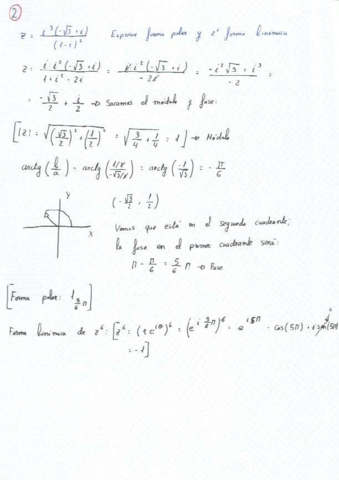 2
z = i³(-√3+i) / (1-i)² Expresar forma polar y z⁶ forma binómica
z = i·i²(-√3+i) / 1+i²-2i = i·i²(-√3+i) / -2i = -i²√3+i³ / -2 =
= -√3/2 + i/2 → Sacamos el módulo y fase:
[|z| = √((√3/2)²+(1/2)²) = √(3/4+1/4) = 1] → Módulo
arctg(b/a) = arctg((1/2)/(-√3/2)) = arctg(-1/√3) = -π/6
Y
X
(-√3/2, 1/2)
Vemos que está en el segundo cuadrante;
la fase en el primer cuadrante será:
π - π/6 = 5/6 π → Fase
[Forma polar: 1 5/6 π]
Forma binómica de z⁶: [z⁶ = (r e^{iθ})⁶ = (e^{i 5/6 π})⁶ = e^{i5π} = cos(5π) + i sin(5π)
= -1]